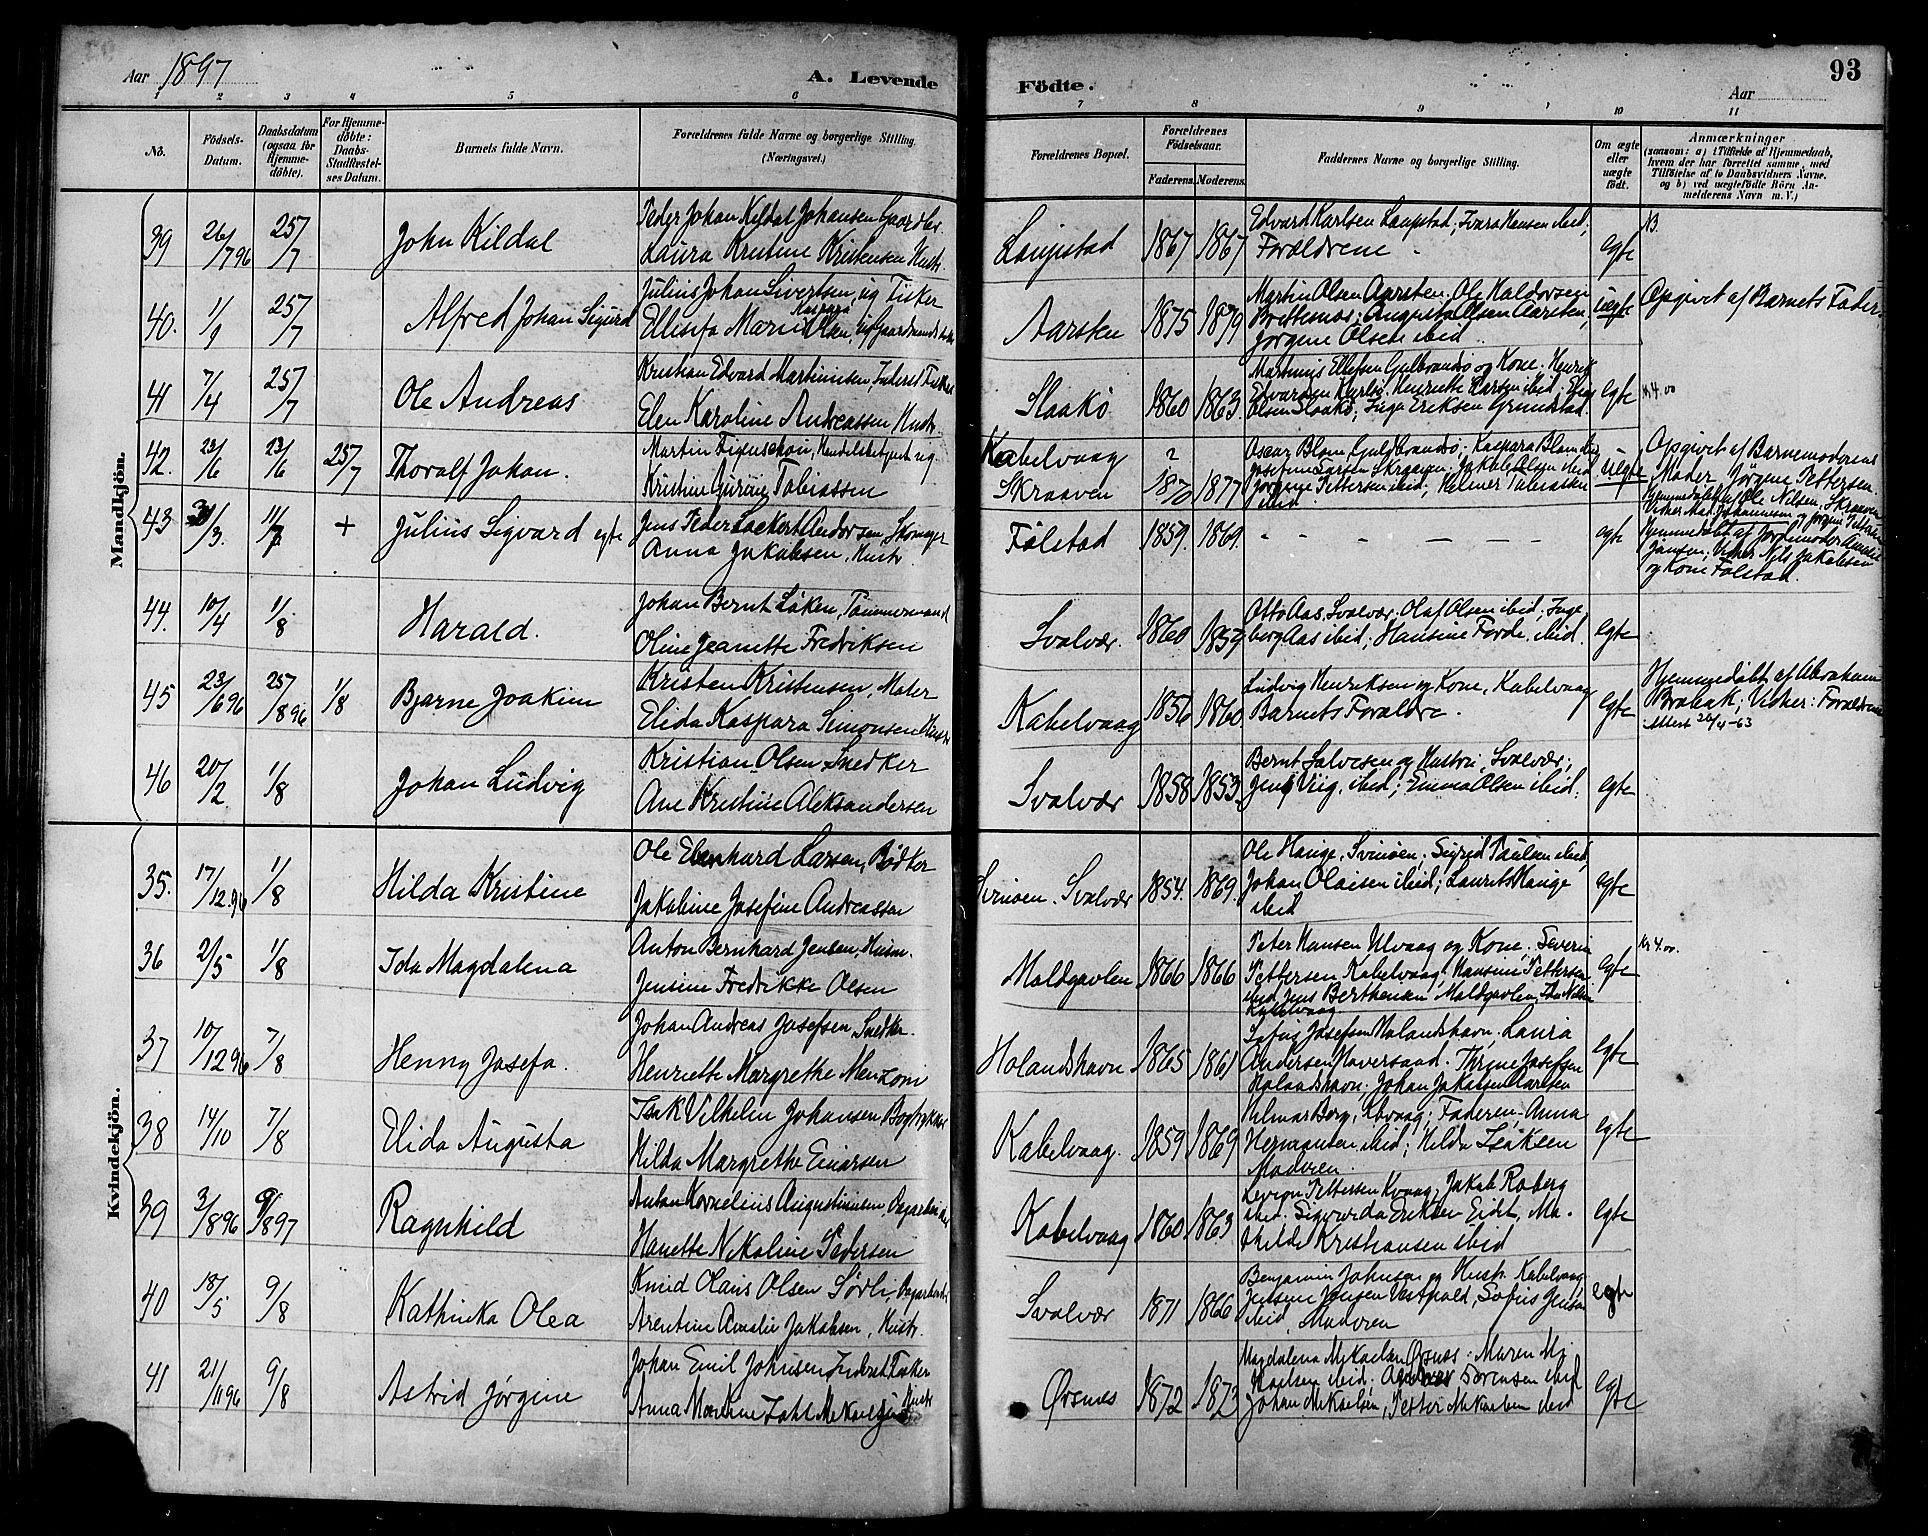 Aar 1897
A. Levende
Födte.
Aar
93
1 2 3 4 5 6 7 8 9 10 11
No.
Födsels-
Datum.
Daabsdatum
(ogsaa for
Hjemme-
döbte).
For Hjemme-
döbte:
Daabs-
Stadfæstel-
ses Datum.
Barnets fulde Navn.
Forældrenes fulde Navne og borgerlige Stilling.
(Næringsvei.)
Forældrenes Bopæl.
Forældrenes
Födselsaar.
Faderens. Moderens.
Faddernes Navne og borgerlige Stilling.
Om ægte
eller
uægte
födt.
Anmærkninger
(saasom: a) i Tilfælde af Hjemmedaab,
hvem der har forrettet samme, med
Tilföielse af to Daabsvidners Navne,
og b) ved uægtefödte Börn An-
melderens Navn m. V.)
Mandkjön.
39 26/7 96 25/7 John Kildal
Peder Johan Kildal Johansen Gaardbr.
Laura Kristine Kristensen Hustr.
Laupstad 1867 1867
Edvard Karlsen Laupstad; Ivara Hansen ibid;
Forældrene
egte
40. 1/1 25/7 Alfred Johan Sigurd
Julius Johan Sivertsen, ug Fisker
Ellisefa Marie Kaspara Olsen, ug Gaardmands datter
Aarsten 1875 1879
Martin Olsen Aarsten, Ole Haldorsen
Brettesnæs; Augusta Olsen Aarsten,
Jørgine Olsen ibid
uegte
Opgivet af Barnets Fader.
41 7/4 25/7 Ole Andreas
Kristian Edvard Martinusen Inderst Fisker
Elen Karoline Andreassen Hustr.
Slaakø 1860 1863
Martinus Ellefsen Gulbrandø og Kone; Henrik
Edvardsen, Henriette Larsen ibid; Elias
Olsen Slaakø; Inga Eriksen Grundstad.
egte
Kr 4.00
42. 23/6 23/6 25/7 Thoralf Johan.
Martin Figenschou, Handelsbetjent ug
Kristine Gurine Tobiassen
Kabelvaag
Skraaven 1870 1877
Oscar Blom Guldbrandsø; Kaspara Blom ibid;
Josefine Larsen Skraaven; Jakob Olsen ibid
Jørgine Pettersen ibid; Helmer Tobiassen
ibid
uegte
Opgivet af Barnemoderens
Moder, Jørgine Pettersen.
Hjemmedøbt af Ole Nilsen, Skraaven
43 3/3. 11/3 + Julius Sigvard egte
Jens Peder Lockert Andersen, Skomager
Anna Jakobsen, Hustr.
Følstad 1859. 1869.
– – – – – –
egte
Hjemmedøbt af Jordemoder Amalie
Jansen; Vidner Nils Jakobsen
og Kone Følstad.
44. 10/4 1/8 Harald.
Johan Bernt Løken, Tømmermand
Oline Jeanette Fredriksen
Svolvær. 1860 1857
Otto Aas, Svolvær. Olaf Olsen ibid; Inge-
borg Aas ibid; Hansine Forde, ibid.
egte
45 23/6 96 25/8 96 1/8 Bjarne Joakim
Kristen Kristensen, Maler
Elida Kaspara Simonsen Hustr
Kabelvaag 1856 1860
Ludvig Henriksen og Kone, Kabelvaag
Barnets Forældre.
egte
Hjemmedøbt af Abraham
Brobak; Vidner: Forældrene
Attest 26/4-63
46 20/2 1/8 Johan Ludvig
Kristian Olsen Snedker
Ane Kristine Aleksandersen
Svolvær 1858 1853
Bernt Salvesen og Hustru, Svolvær;
Jens Viig, ibid; Emma Olsen ibid.
egte
Kvindekjön.
35. 17/12. 96 1/8 Hilda Kristine
Ole Edenhard Larsen, Bødker
Jakobine Josefine Andreassen
Svinøen. Svolvær 1854. 1869.
Ole Hauge, Svinøen; Sigrid Paulsen ibid;
Johan Olaisen ibid; Laurits Hauge
ibid
egte
36 2/5 1/8 Ida Magdalena
Anton Bernhard Jensen, Husm.
Jensine Fredrikke Olsen
Moldgavlen 1866 1866
Peter Hansen Ulvaag og Kone; Severin
Pettersen Kabelvaag; Hansine Pettersen
ibid Jens Berthensen Moldgavlen, Ida Nilsen
Kabelvaag
egte
Kr 4.00.
37 10/12 96 7/8 Henny Josefa.
Johan Andreas Josefsen, Snedker.
Henriette Margrethe Menzoni
Holandshavn 1865 1861
Josefsen Holandshavn, Laura
Andersen Haversand. Thrine Josefsen
Holandshavn; Johan Jakobsen Aarsten
egte
38 14/10 7/8 Elida Augusta
Isak Vilhelm Johansen, Bogtrykker
Hilda Margrethe Einarsen
Kabelvaag. 1859 1869
Hilmar Berg, Kbvaag; Faderen; Anna
Hermansen ibid; Hilda Isaksen
Moderen.
egte
39 3/8 96 9/8 97 Ragnhild
Anton Kornelius Augustinusen, Dagarbeider
Hanette Nikoline Pedersen
Kabelvaag 1860 1863
Pettersen Kvaag; Jakob Roberg
ibid. Sigvarda Eriksen Eidet, Ma-
thilde Kristiansen ibid
egte
40 18/5 9/8 Kathinka Olea
Knud Olaus Olsen Sørli, Dagarbeider
Arentine Amalie Jakobsen, Hustr.
Svolvær 1871 1866
Benjamin Johnsen og Hustr. Kabelvaag
Jensine Jensen Vestpold, Sofus Jensen
ibid, Moderen
egte
41 21/11 96 9/8 Astrid Jørgine
Johan Emil Johnsen Inderst Fisker
Anna Martine Dahl Mikaelsen Hustr
Ørsnes 1872 1872
Magdalena Mikaelsen Ørsnes. Maren Mi-
kaelsen ibid. Andreas Sørensen ibid
Johan Mikaelsen, Petter Mikaelsen ibid
egte